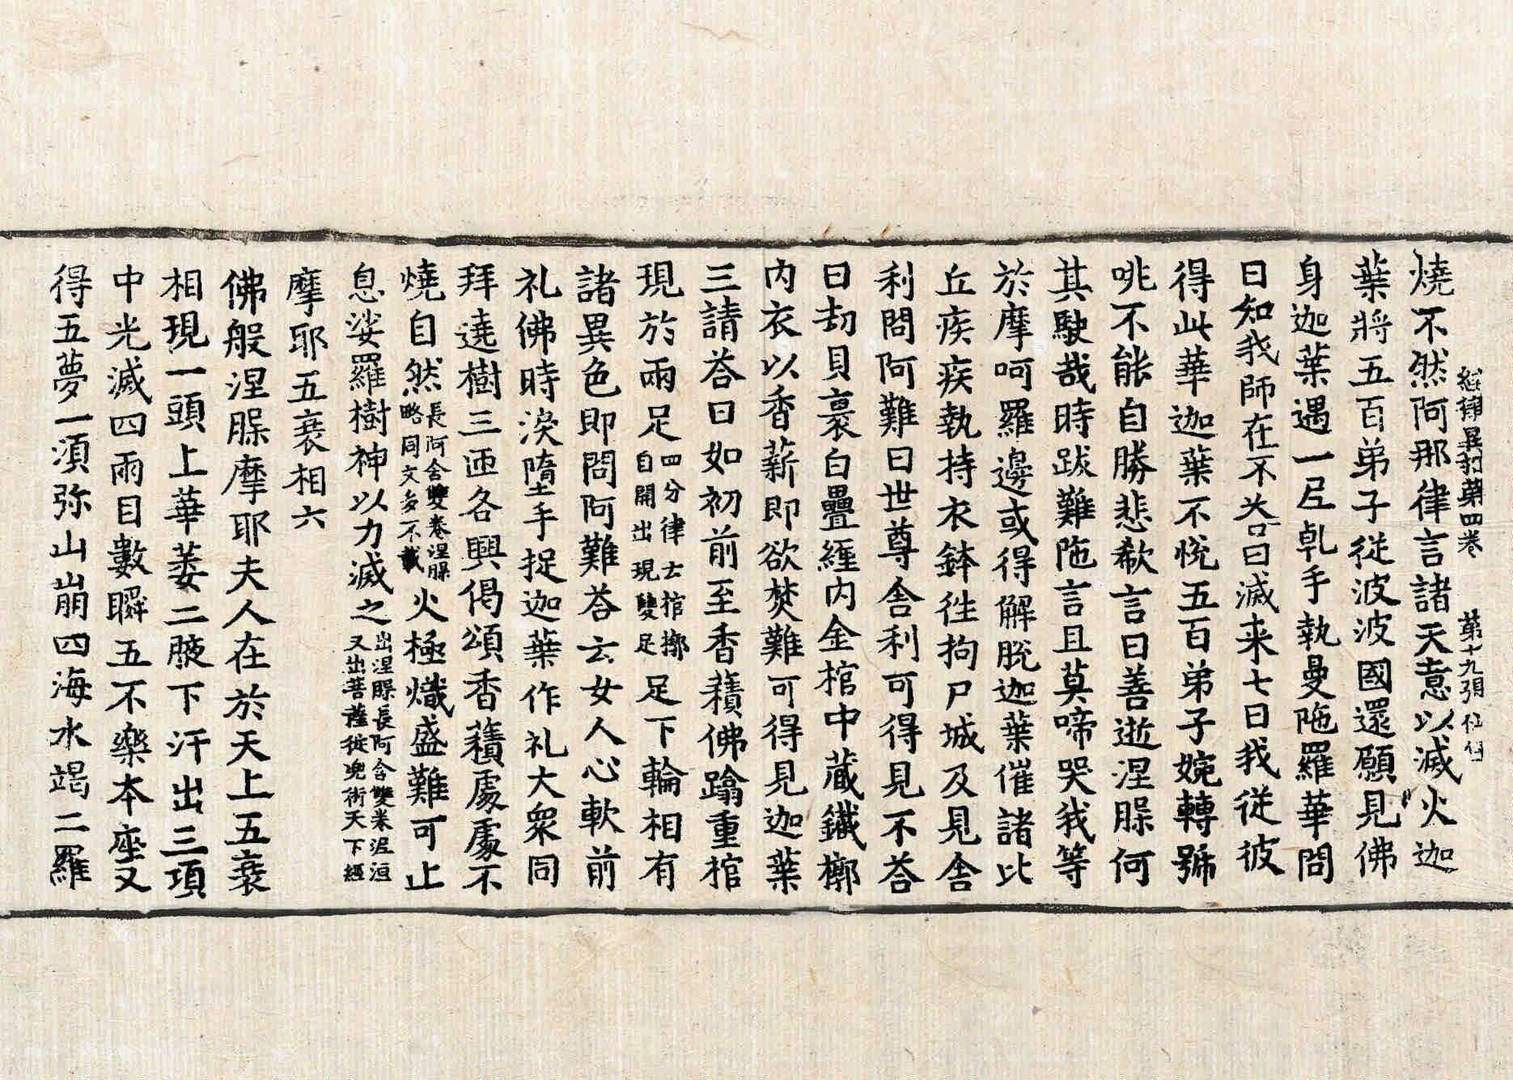 經律異相第四卷 第十九張
燒不然阿那律言諸天意以滅火迦
葉將五百弟子從波波國還願見佛
身迦葉遇一尼乹手執曼陁羅華問
曰知我師在不荅曰滅来七日我從彼
得此華迦葉不悅五百弟子婉轉號
咷不能自勝悲欷言曰善逝涅槃何
其駛哉時跋難陁言且莫啼哭我等
於摩呵羅邊或得解脫迦葉催諸比
丘疾疾執持衣鉢徃拘尸城及見舍
利問阿難曰世尊舍利可得見不荅
曰劫貝裹白疊纏内金棺中藏鐵槨
内衣以香薪即欲焚難可得見迦葉
三請荅曰如初前至香𧂐佛踰重棺
現於兩足四分律云棺槨自開出現雙足足下輪相有
諸異色即問阿難荅云女人心軟前
礼佛時淚墮手捉迦葉作礼大衆同
拜遶樹三匝各興偈頌香𧂐處處不
燒自然長阿含雙卷涅槃略同文多不載火極熾盛難可止
息娑羅樹神以力滅之出涅槃長阿含雙來泥洹又出菩薩從兜術天下經
摩耶五衰相六
佛般涅槃摩耶夫人在於天上五衰
相現一頭上華萎二腋下汗出三項
中光滅四兩目數瞬五不樂本座又
得五夢一須弥山崩四海水竭二羅